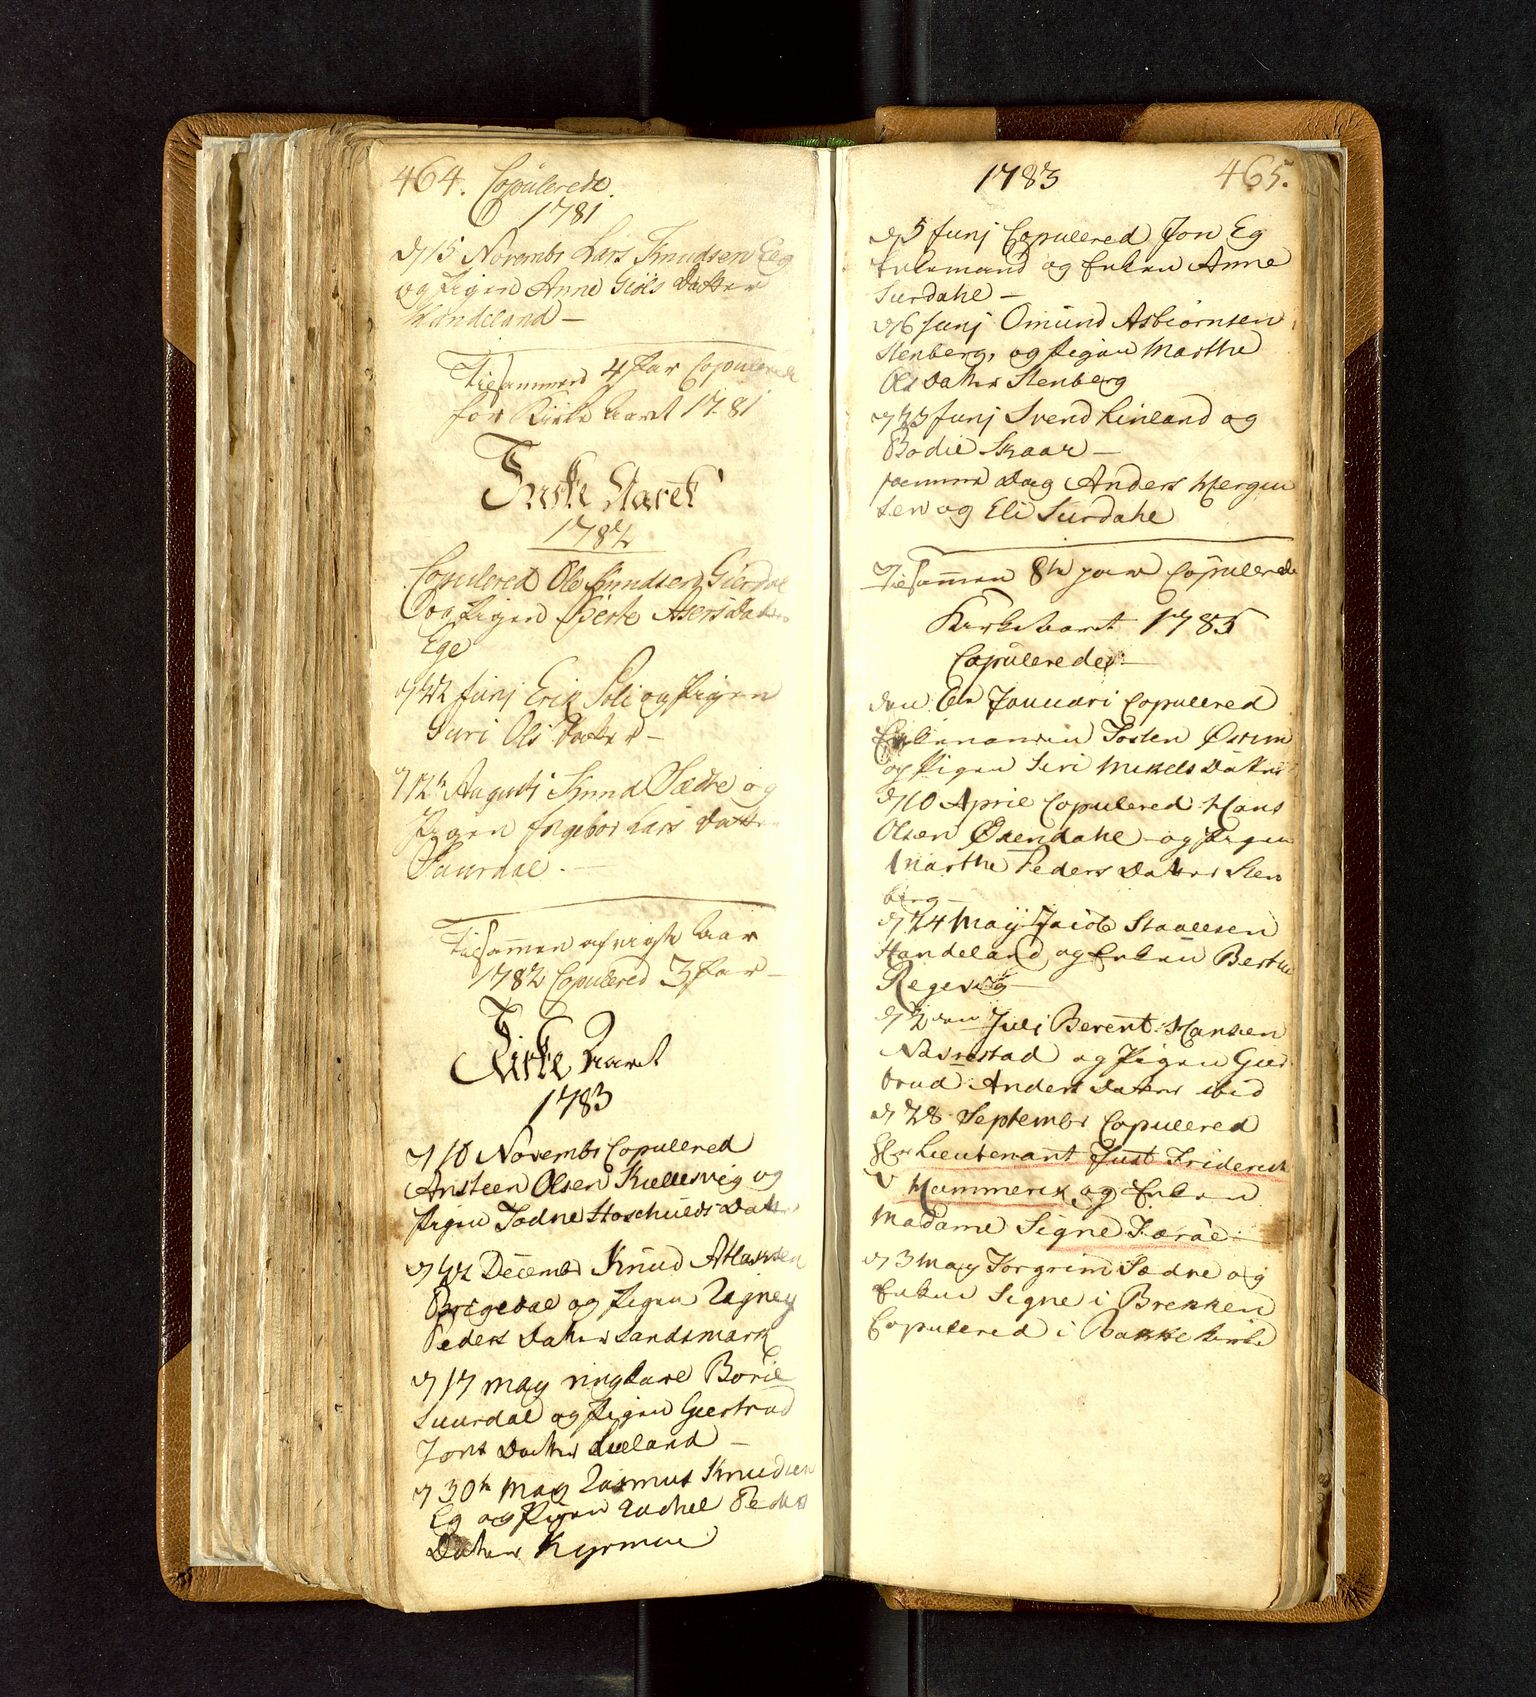 464. Copulerede
1781
d 15 Novembr Lars Knudsen Eeg
og Pigen Anne Giils Datter
Handeland —
Tilsammen 4 Par Copulerede
for Kirke Aaret 1781
Kirke Aaret
1782
Copulered Ole Knudsen Gierdal
og Pigen Berte Asers Datter
Ege
d 22 Junj Erik Soli og Pigen
Guri Ols Datter —
d 12te Augusti Knud Sædre og
Pigen Ingebor Lars Datter
Suurdal. —
Tilsammen afvigte Aar
1782 Copulered 3 Par —
Kirke Aaret
1783
d 10 Novembr Copulered
Ansteen Olsen Kullesvig og
Pigen Todne Hoschulds Datter
d 22 Decembr Knud Atlaksen
Birgedal og Pigen Ragney
Peders Datter Sandsmark
d 17 May ungkare Borie
Suurdal og Pigen Giertrud
Jons Datter Lieland —
d 30te May Rasmus Knudsen
Eg og Pigen Rachel Peders
Datter
1783 465.
d 5 Junj Copulered Jon Eg
Enkemand og Enken Anne
Surdahl —
d 6 Junj Omund Asbiørnsen
Stenberg, og Pigen Marthe
Ols Datter Stenberg
d 23 Junj Svend Linland og
Bodil Skaar —
samme Dag Anders
og Eli Surdahl
Tilsammen 8te par Copulerede
Kirke Aaret 1785
Copulerede:
den 6te Januari Copulered
Enkemanden Tosten
og Pigen Siri Mikels Datter
d 10 April Copulered Hans
Olsen Øxendahl og Pigen
Marthe Peders Datter Sten
berg —
d 24 May Jacob Staalesen
Handeland og Enken Berthe
Regevig
d 2den Juli Berent Hansen
Navrestad og Pigen Gier
trud Anders Datter ibid
d 28 Septembr Copulered
Hr Lieutenant Just Friderich
v Hammerik og Enken
Madame Signe Færøe.
d 3 May Torgrim Sædre og
Enken Signe i Brekken
Copulered i Bakke Kirke